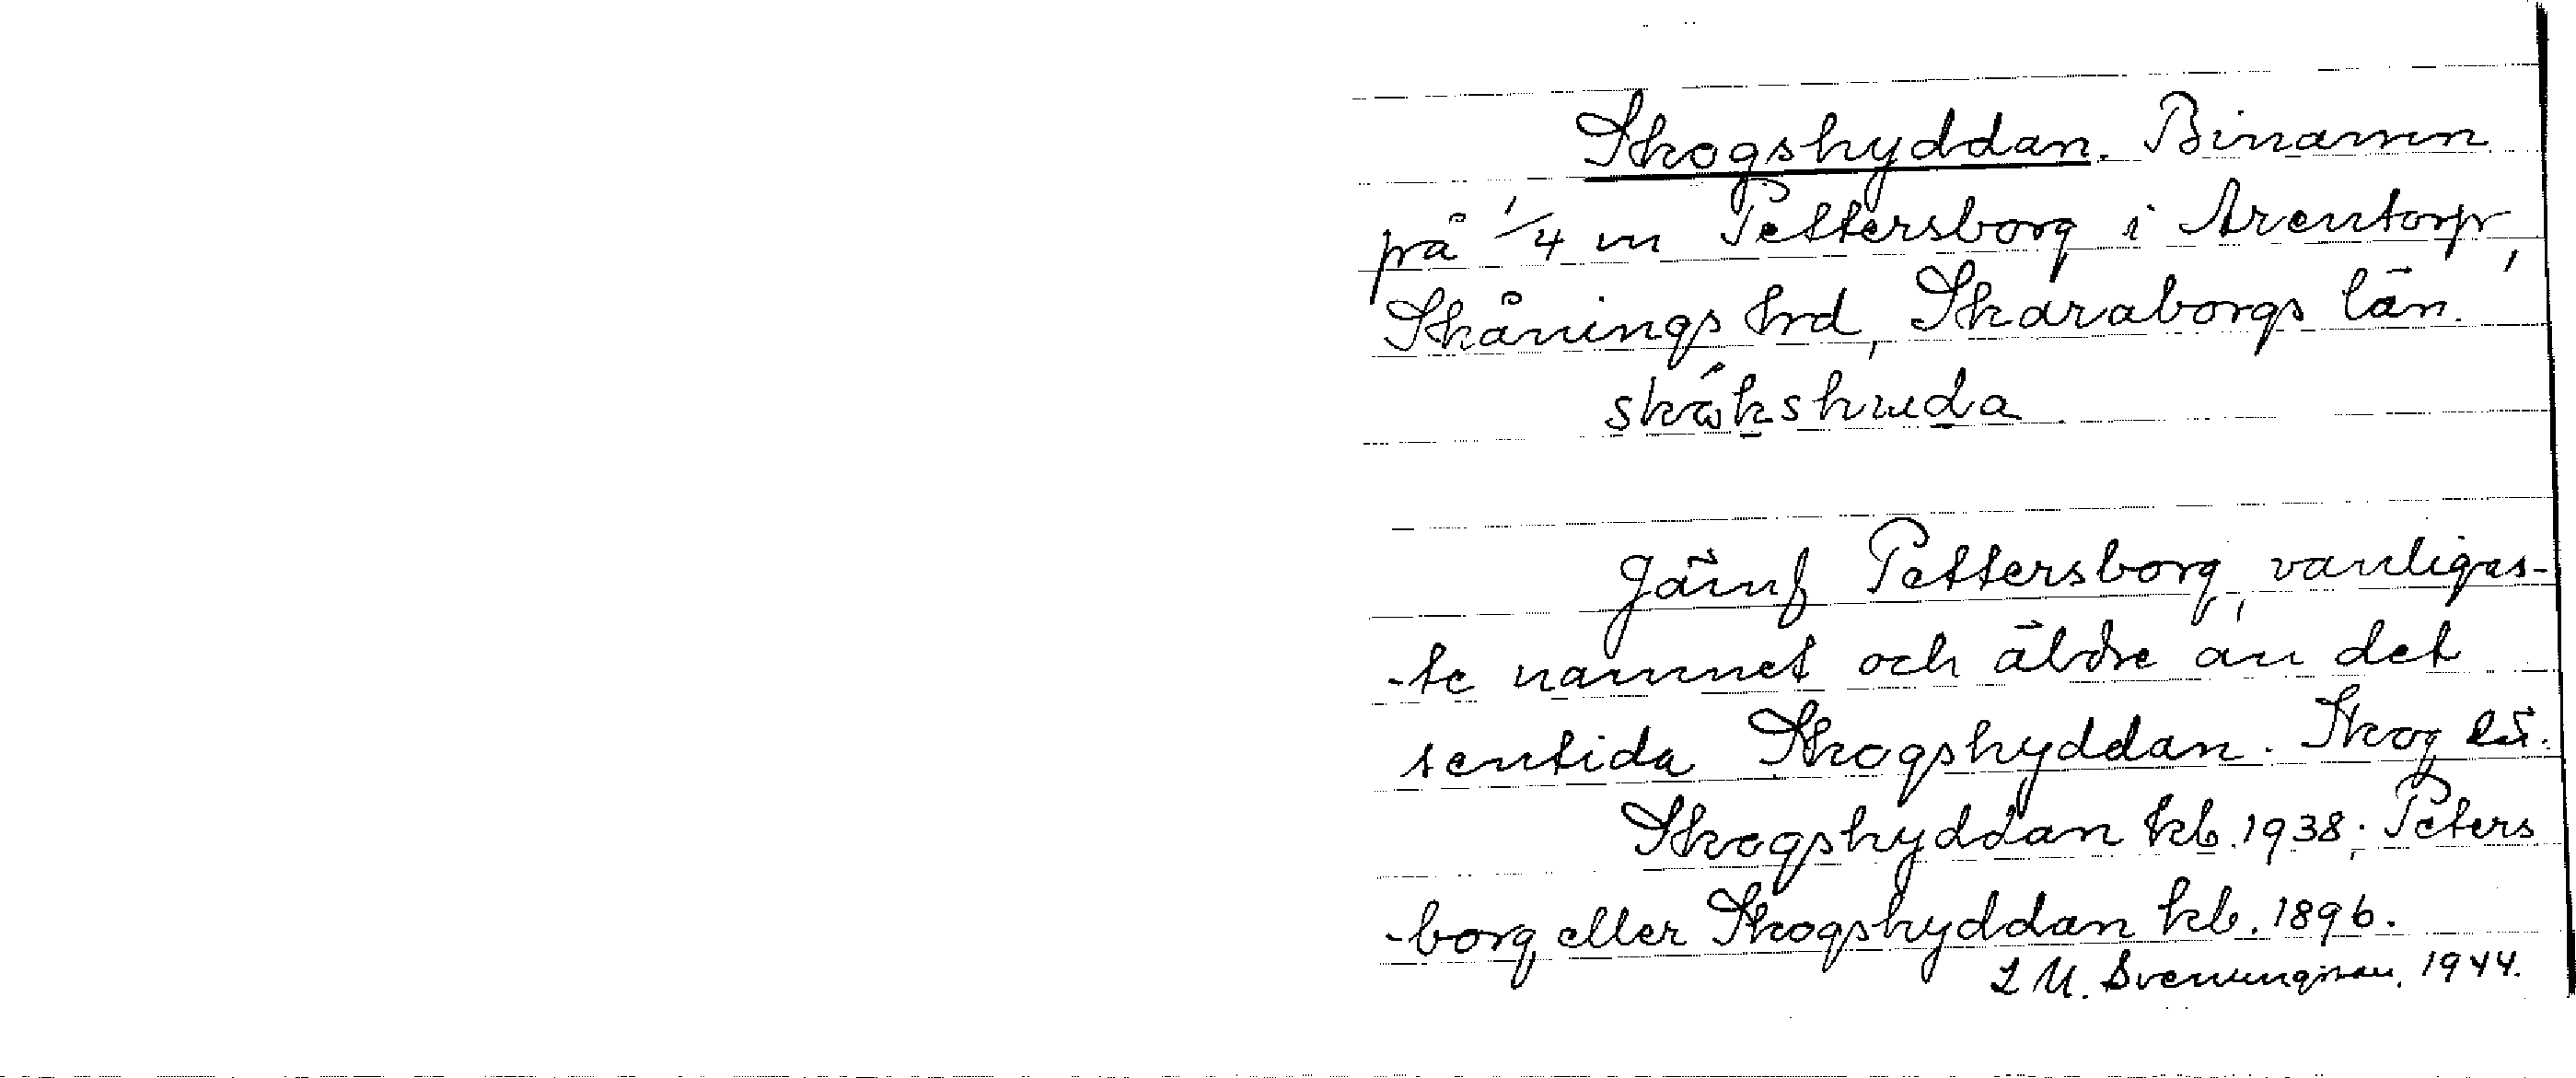 Skogshyddan. Binamn
på 1/4 m Pettersborg i Arentorp,
Skånings hrd, Skaraborgs län.
Jämf Pettersborg, vanligas-
-te namnet och äldre än det
sentida Skogshyddan. Skog
Skogshyddan kb. 1938; Peters
-borg eller Skogshyddan kb. 1896.
Svenungsson. 1944.